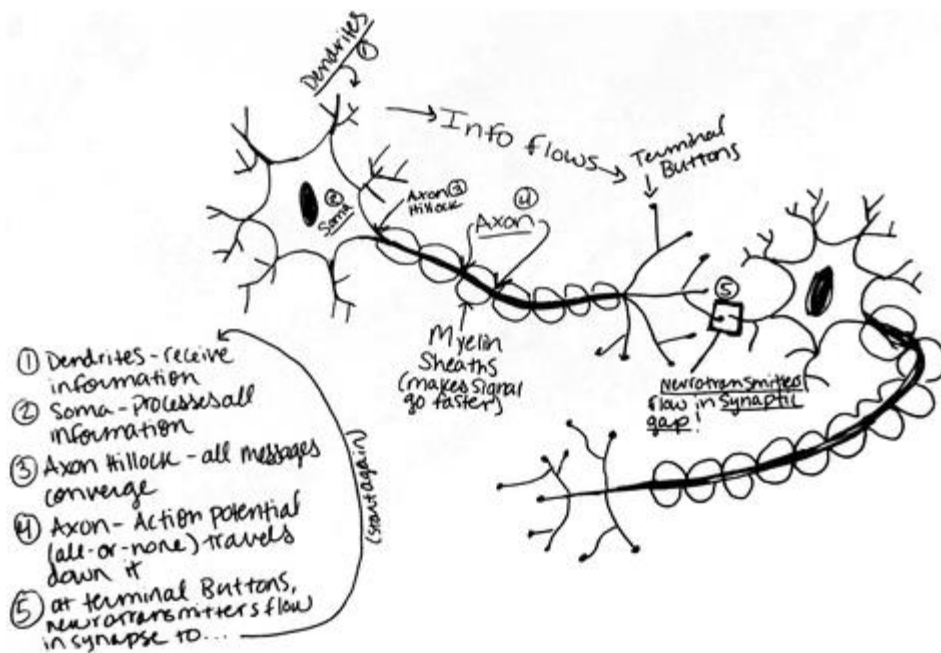 Dendrites
①
→ Info flows →
Terminal
Buttons
② Soma
Axon ③
Hillock
④
Axon
⑤
Myelin
Sheaths
(makes signal
go faster)
Neurotransmitters
flow in synaptic
gap!
① Dendrites - receive
information
② Soma - Processes all
information
③ Axon Hillock - all messages
converge
④ Axon - Action potential
(all-or-none) travels
down it
⑤ at terminal Buttons,
neurotransmitters flow
in synapse to...
(start again)